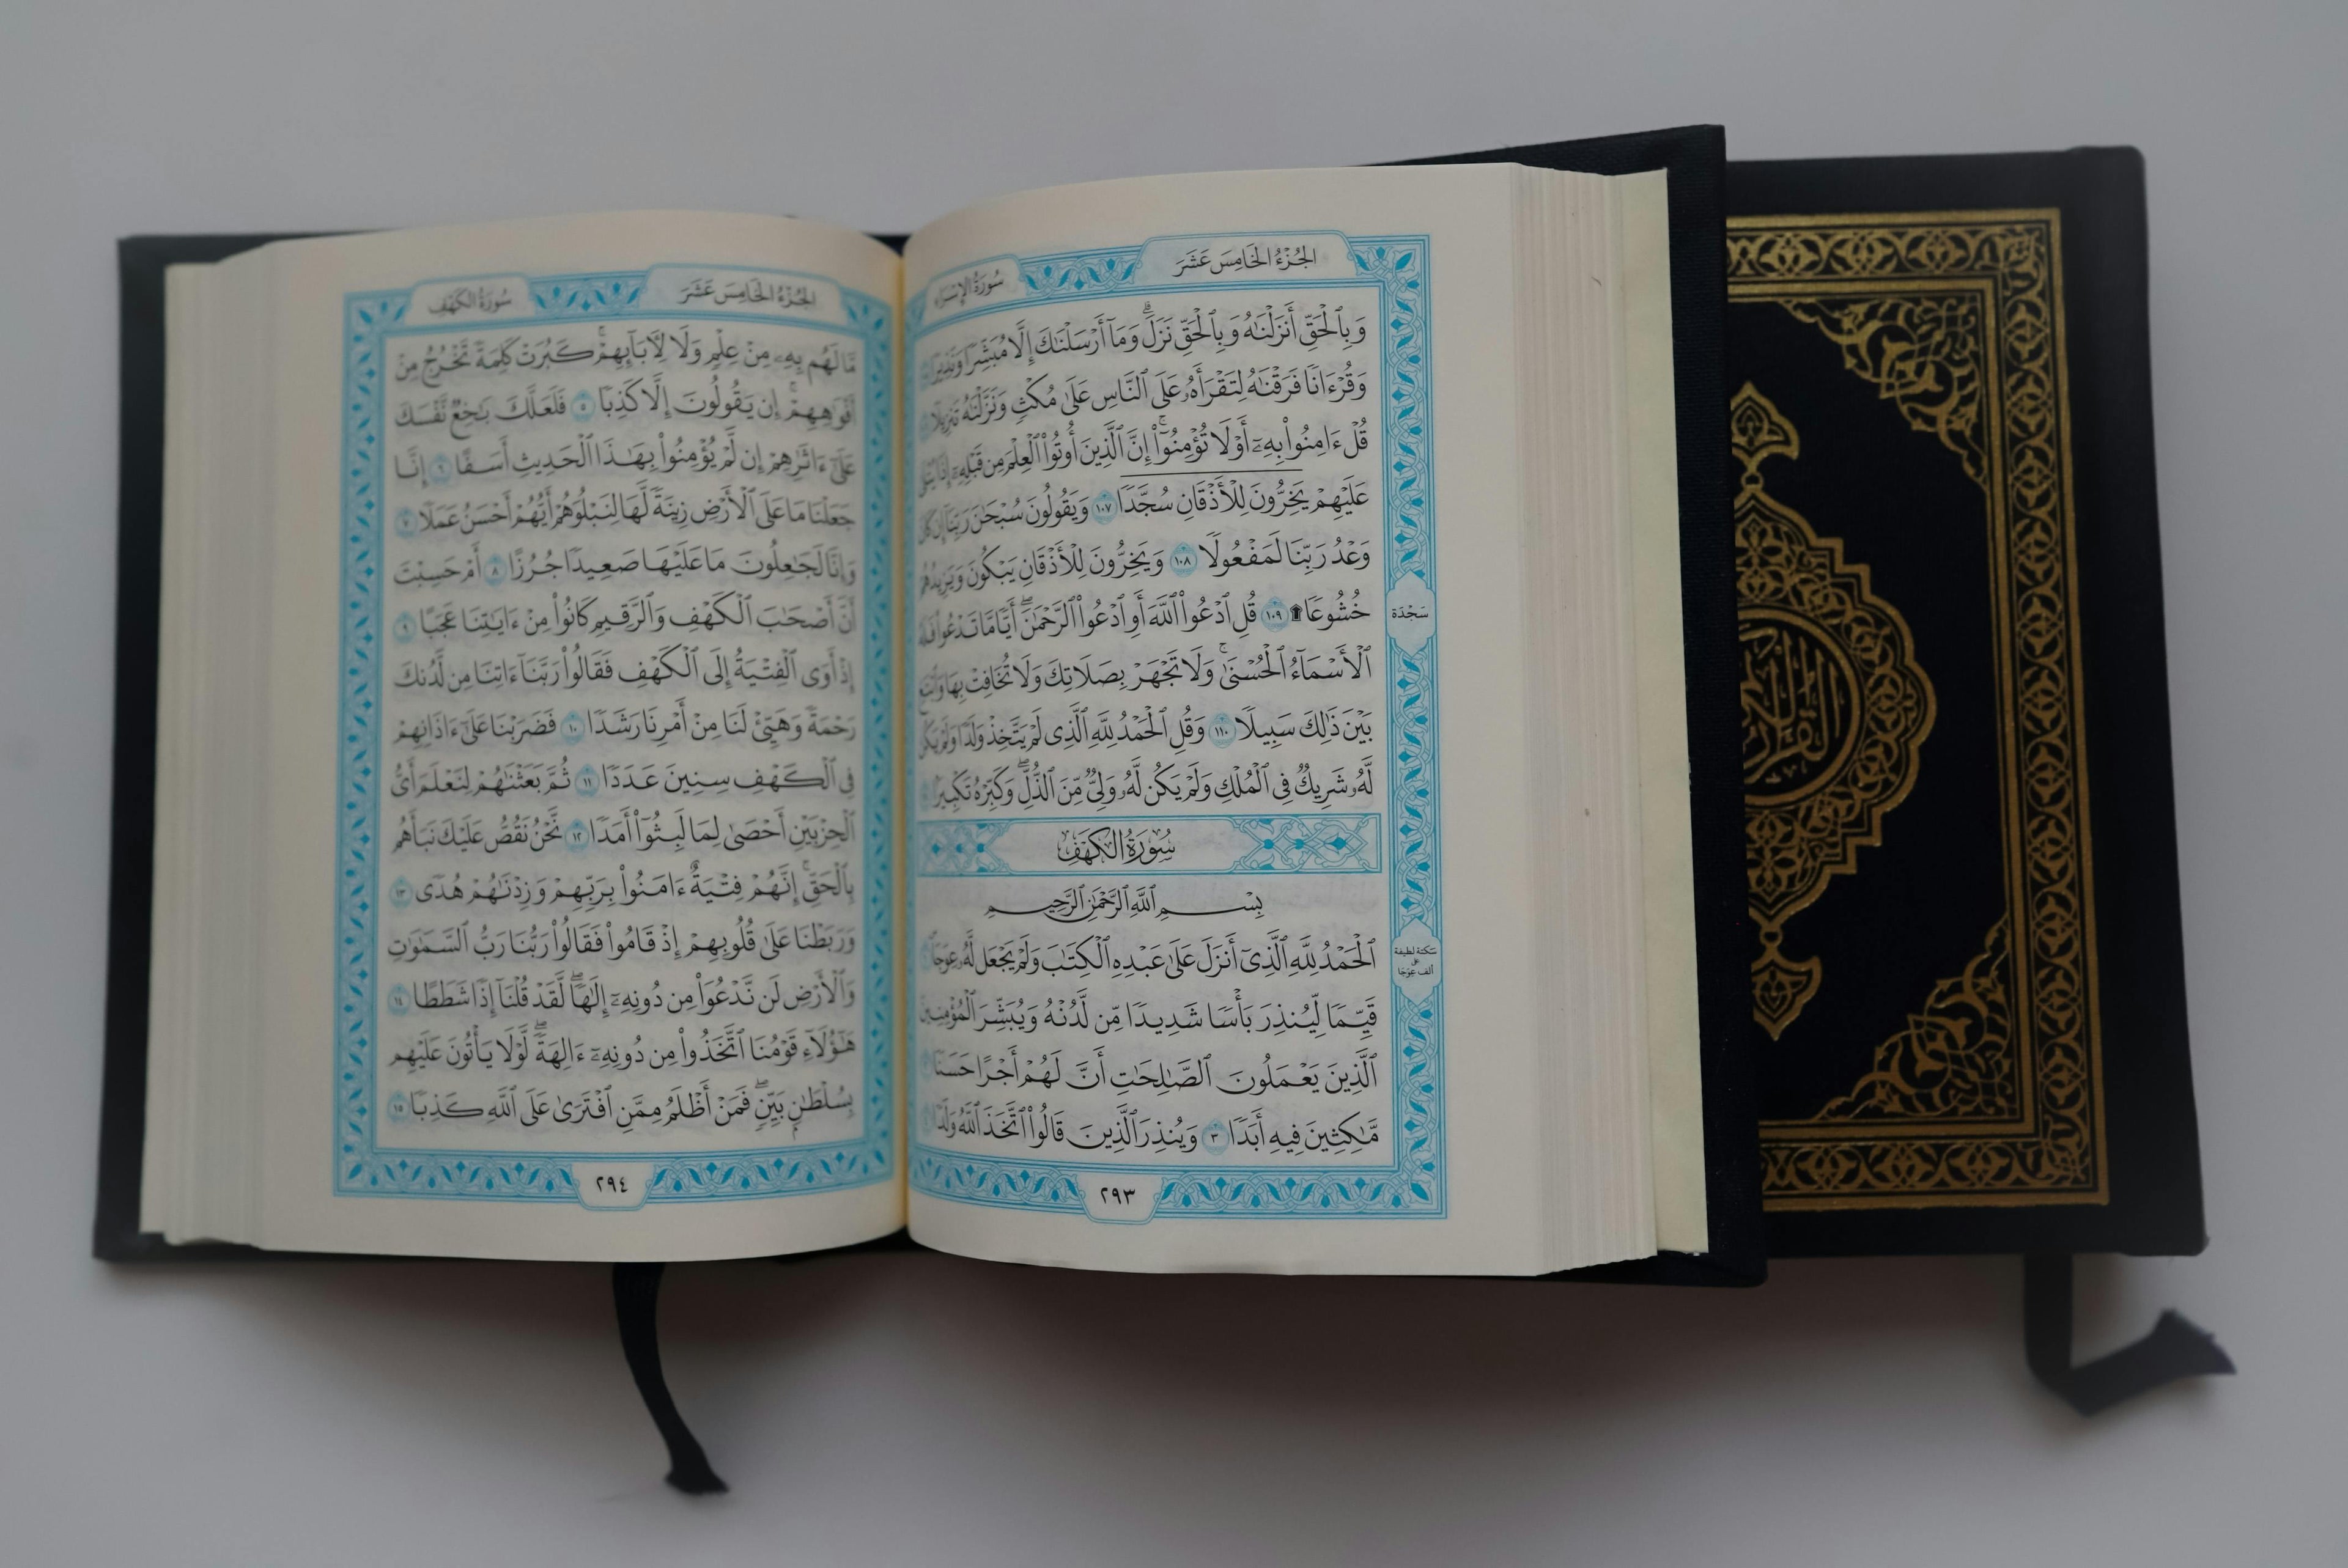 الجُزْءُ الخَامِسَ عَشَرَ
سُورَةُ الإِسْرَاءِ
وَبِٱلْحَقِّ أَنزَلْنَٰهُ وَبِٱلْحَقِّ نَزَلَۗ وَمَآ أَرْسَلْنَٰكَ إِلَّا مُبَشِّرًا وَنَذِيرًا
وَقُرْءَانًا فَرَقْنَٰهُ لِتَقْرَأَهُۥ عَلَى ٱلنَّاسِ عَلَىٰ مُكْثٍ وَنَزَّلْنَٰهُ تَنزِيلًا
قُلْ ءَامِنُوا۟ بِهِۦٓ أَوْ لَا تُؤْمِنُوٓا۟ۚ إِنَّ ٱلَّذِينَ أُوتُوا۟ ٱلْعِلْمَ مِن قَبْلِهِۦٓ إِذَا يُتْلَىٰ
عَلَيْهِمْ يَخِرُّونَ لِلْأَذْقَانِ سُجَّدًا ١٠٧ وَيَقُولُونَ سُبْحَٰنَ رَبِّنَآ إِن كَانَ
وَعْدُ رَبِّنَا لَمَفْعُولًا ١٠٨ وَيَخِرُّونَ لِلْأَذْقَانِ يَبْكُونَ وَيَزِيدُهُمْ
خُشُوعًا ۩ ١٠٩ قُلِ ٱدْعُوا۟ ٱللَّهَ أَوِ ٱدْعُوا۟ ٱلرَّحْمَٰنَۖ أَيًّا مَّا تَدْعُوا۟ فَلَهُ
سَجْدَة
ٱلْأَسْمَآءُ ٱلْحُسْنَىٰۚ وَلَا تَجْهَرْ بِصَلَاتِكَ وَلَا تُخَافِتْ بِهَا وَٱبْتَغِ
بَيْنَ ذَٰلِكَ سَبِيلًا ١١٠ وَقُلِ ٱلْحَمْدُ لِلَّهِ ٱلَّذِى لَمْ يَتَّخِذْ وَلَدًا وَلَمْ يَكُن
لَّهُۥ شَرِيكٌ فِى ٱلْمُلْكِ وَلَمْ يَكُن لَّهُۥ وَلِىٌّ مِّنَ ٱلذُّلِّۖ وَكَبِّرْهُ تَكْبِيرًۢا
سُورَةُ الكَهْفِ
بِسْمِ ٱللَّهِ ٱلرَّحْمَٰنِ ٱلرَّحِيمِ
ٱلْحَمْدُ لِلَّهِ ٱلَّذِىٓ أَنزَلَ عَلَىٰ عَبْدِهِ ٱلْكِتَٰبَ وَلَمْ يَجْعَل لَّهُۥ عِوَجَاۜ
سكتة لطيفة
على
ألف عِوَجَا
قَيِّمًا لِّيُنذِرَ بَأْسًا شَدِيدًا مِّن لَّدُنْهُ وَيُبَشِّرَ ٱلْمُؤْمِنِينَ
ٱلَّذِينَ يَعْمَلُونَ ٱلصَّٰلِحَٰتِ أَنَّ لَهُمْ أَجْرًا حَسَنًا
مَّٰكِثِينَ فِيهِ أَبَدًا ٣ وَيُنذِرَ ٱلَّذِينَ قَالُوا۟ ٱتَّخَذَ ٱللَّهُ وَلَدًا
٢٩٣
الجُزْءُ الخَامِسَ عَشَرَ
سُورَةُ الكَهْفِ
مَّا لَهُم بِهِۦ مِنْ عِلْمٍ وَلَا لِءَابَآئِهِمْۚ كَبُرَتْ كَلِمَةً تَخْرُجُ مِنْ
أَفْوَٰهِهِمْۚ إِن يَقُولُونَ إِلَّا كَذِبًا ٥ فَلَعَلَّكَ بَٰخِعٌ نَّفْسَكَ
عَلَىٰٓ ءَاثَٰرِهِمْ إِن لَّمْ يُؤْمِنُوا۟ بِهَٰذَا ٱلْحَدِيثِ أَسَفًا ٦ إِنَّا
جَعَلْنَا مَا عَلَى ٱلْأَرْضِ زِينَةً لَّهَا لِنَبْلُوَهُمْ أَيُّهُمْ أَحْسَنُ عَمَلًا ٧
وَإِنَّا لَجَٰعِلُونَ مَا عَلَيْهَا صَعِيدًا جُرُزًا ٨ أَمْ حَسِبْتَ
أَنَّ أَصْحَٰبَ ٱلْكَهْفِ وَٱلرَّقِيمِ كَانُوا۟ مِنْ ءَايَٰتِنَا عَجَبًا ٩
إِذْ أَوَى ٱلْفِتْيَةُ إِلَى ٱلْكَهْفِ فَقَالُوا۟ رَبَّنَآ ءَاتِنَا مِن لَّدُنكَ
رَحْمَةً وَهَيِّئْ لَنَا مِنْ أَمْرِنَا رَشَدًا ١٠ فَضَرَبْنَا عَلَىٰٓ ءَاذَانِهِمْ
فِى ٱلْكَهْفِ سِنِينَ عَدَدًا ١١ ثُمَّ بَعَثْنَٰهُمْ لِنَعْلَمَ أَىُّ
ٱلْحِزْبَيْنِ أَحْصَىٰ لِمَا لَبِثُوٓا۟ أَمَدًا ١٢ نَّحْنُ نَقُصُّ عَلَيْكَ نَبَأَهُم
بِٱلْحَقِّۚ إِنَّهُمْ فِتْيَةٌ ءَامَنُوا۟ بِرَبِّهِمْ وَزِدْنَٰهُمْ هُدًى ١٣
وَرَبَطْنَا عَلَىٰ قُلُوبِهِمْ إِذْ قَامُوا۟ فَقَالُوا۟ رَبُّنَا رَبُّ ٱلسَّمَٰوَٰتِ
وَٱلْأَرْضِ لَن نَّدْعُوَا۟ مِن دُونِهِۦٓ إِلَٰهًاۖ لَّقَدْ قُلْنَآ إِذًا شَطَطًا ١٤
هَٰٓؤُلَآءِ قَوْمُنَا ٱتَّخَذُوا۟ مِن دُونِهِۦٓ ءَالِهَةًۖ لَّوْلَا يَأْتُونَ عَلَيْهِم
بِسُلْطَٰنٍۭ بَيِّنٍۖ فَمَنْ أَظْلَمُ مِمَّنِ ٱفْتَرَىٰ عَلَى ٱللَّهِ كَذِبًا ١٥
٢٩٤